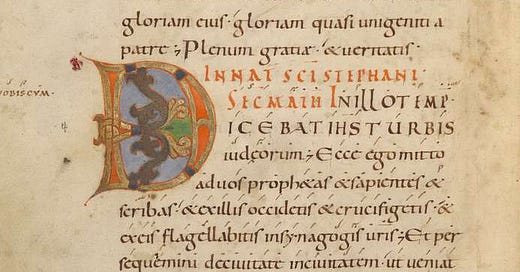 gloriam eius · gloriam quasi unigeniti a
patre ; Plenum gratiæ · & veritatis ·
IN NAT SCI STEPHANI
SEC MATH IN ILLO TEMP ·
DICEBAT IHS TURBIS
iudęorum ; Ecce ego mitto
ad uos prophetas & sapientes &
scribas · & ex illis occidetis & crucifigetis · &
ex eis flagellabitis in synagogis uris ; Et per
sequemini de ciuitate in ciuitatem · ut ueniat
OBISCUM ·